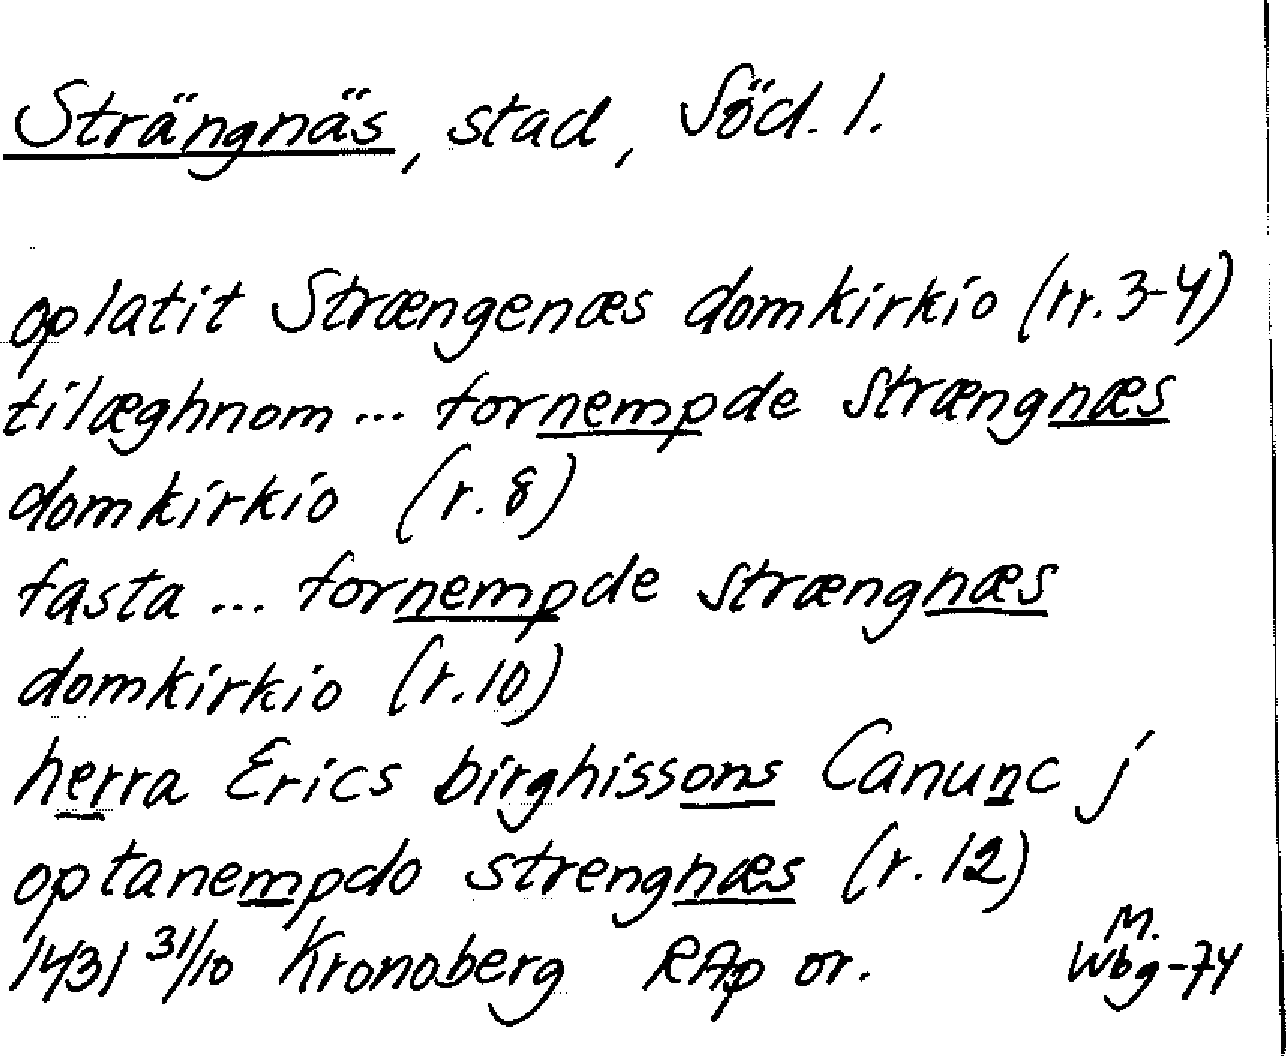 Strängnäs, stad, Söd. l.
oplatit Strængenæs domkirkio (rr. 3-4)
tilæghnom... fornempde Strængnæs
domkirkio (r. 8)
fasta ... fornempde strængnæs
domkirkio (r. 10)
herra Erics birghissons Canunc j
optanempdo strengnæs (r. 12)
1431 31/10 Kronoberg RAp or.
M.
Wbg-74